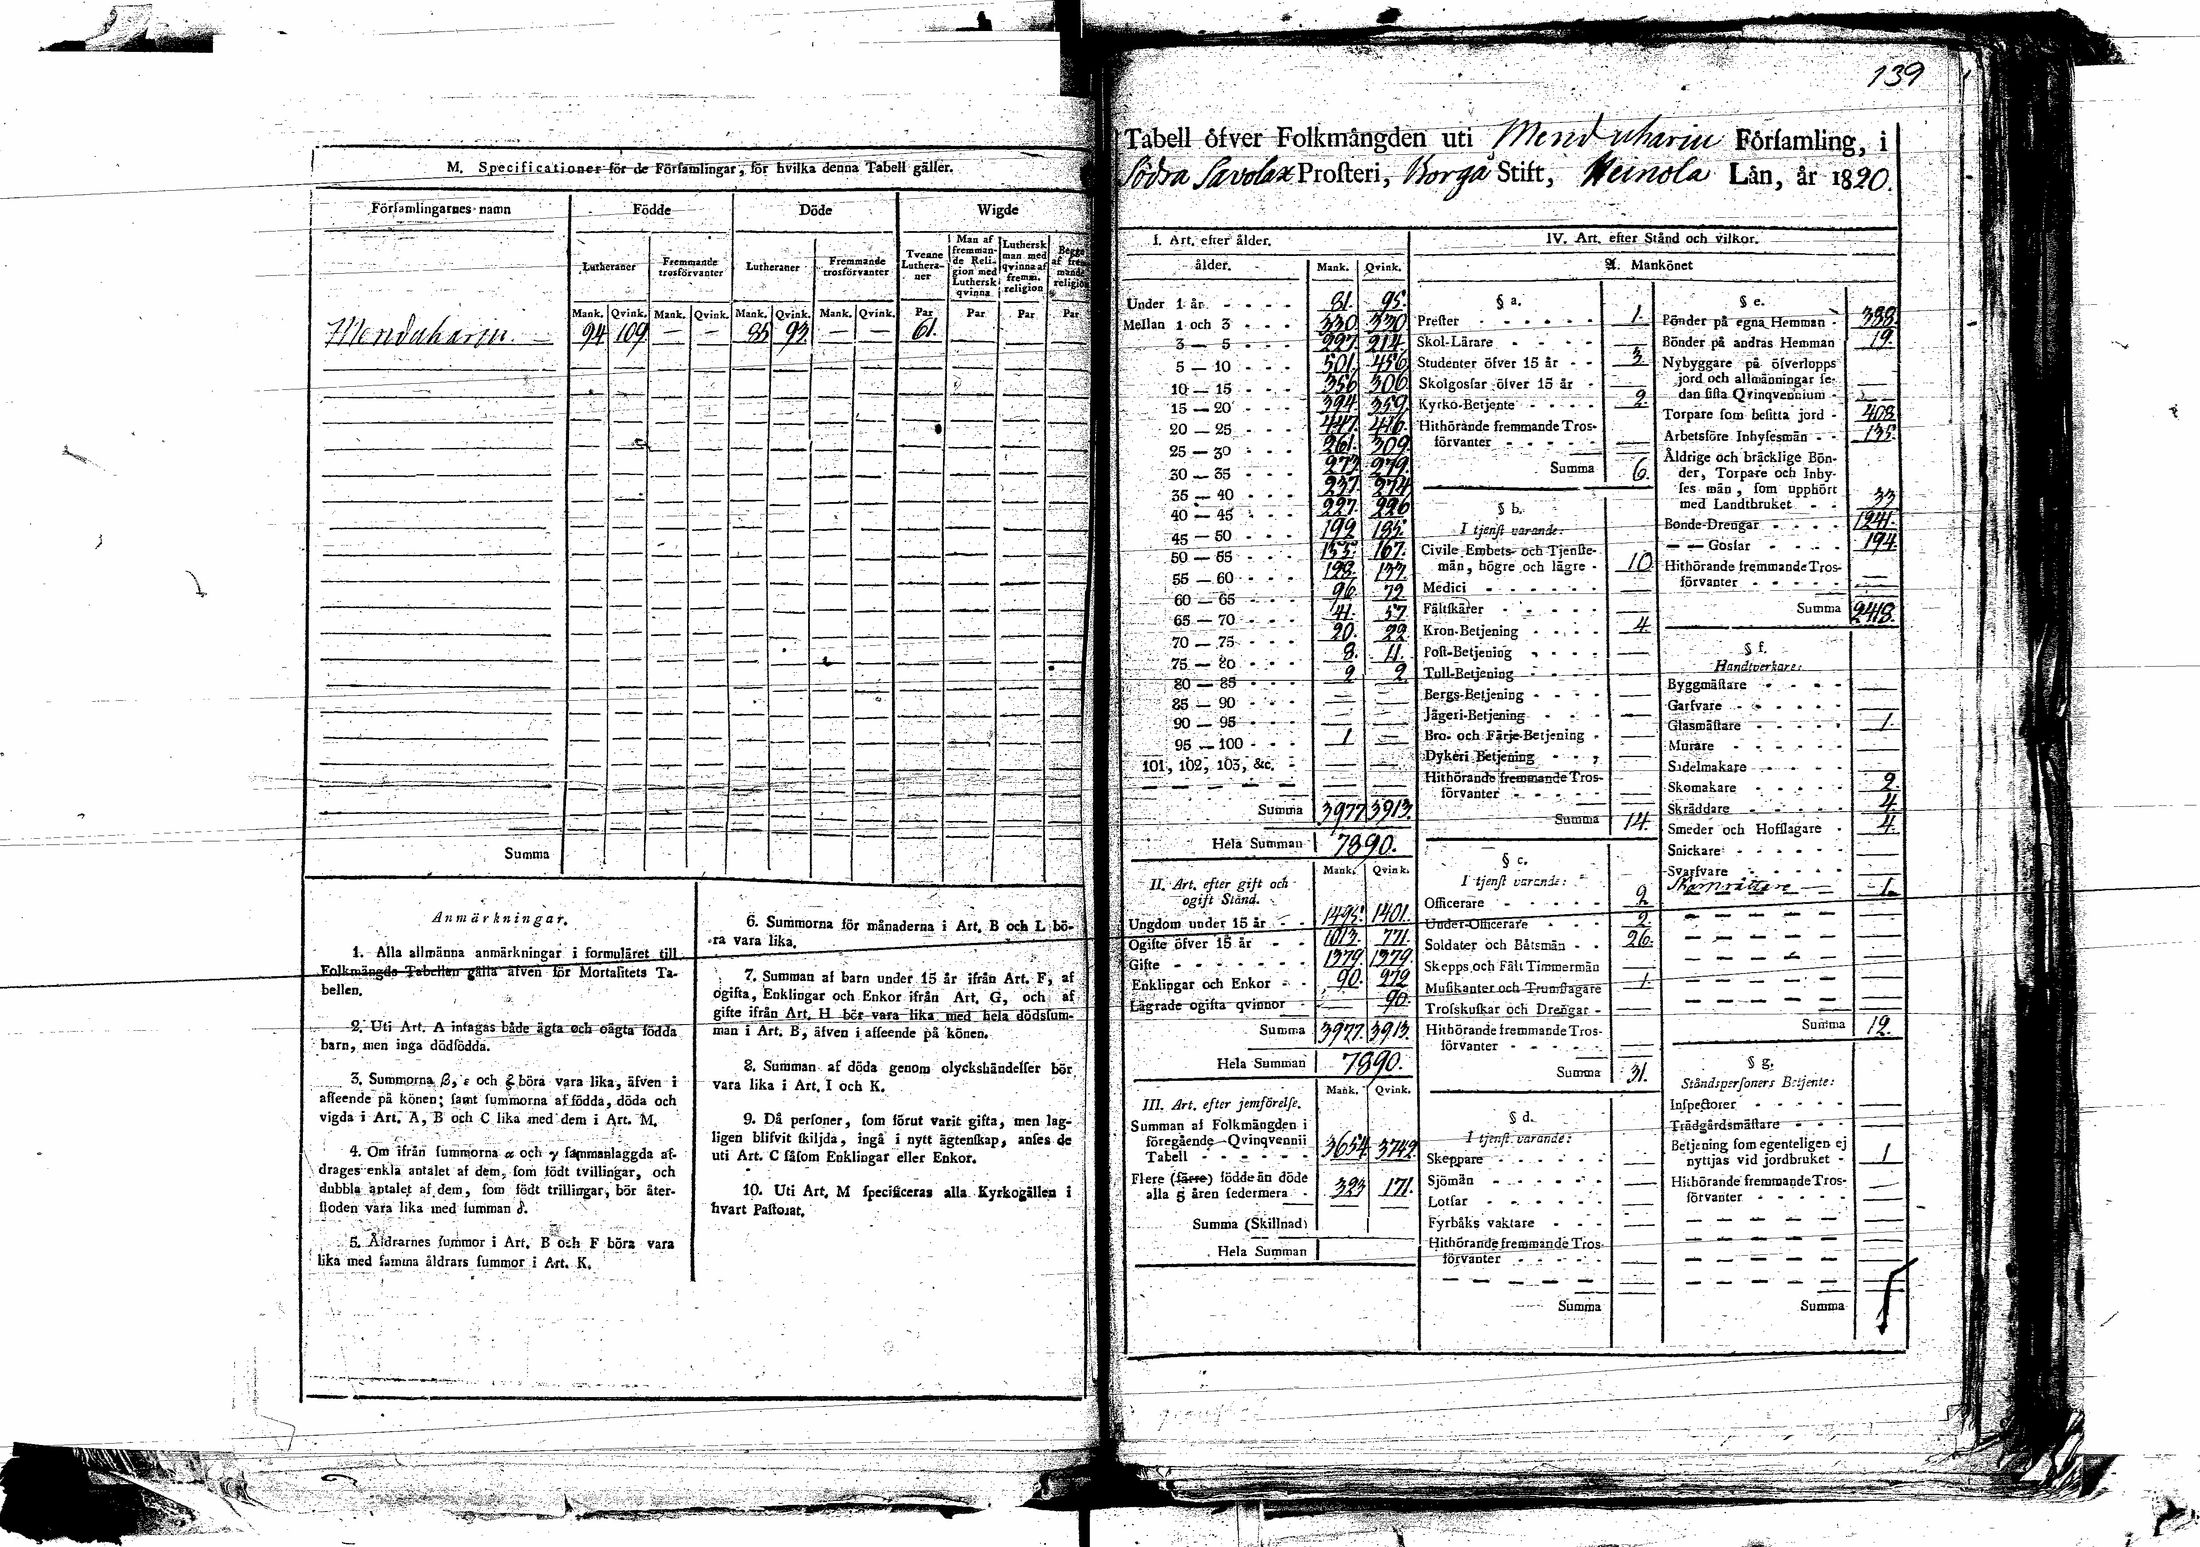 M. Specificationer för de Förſamlingar, för hvilka denna Tabell gäller.
Förſamlingarnes namn Födde Döde Wigde
Lutheraner Fremmande trosförvanter Lutheraner Fremmande trosförvanter Tvenne Lutheraner Man af fremmande Religion med Lutherſk qvinna Lutherſk man med qvinna af fremm. religion Begge af fremmande religion
Mank. Qvink. Mank. Qvink. Mank. Qvink. Mank. Qvink. Par Par Par Par
Menduharju 94 109 — — 85 93 — — 61.
Summa
Anmärkningar.
1. Alla allmänna anmärkningar i formuläret till
Folkmängds Tabellen gälla äfven för Mortalitets Ta-
bellen.
2. Uti Art. A intagas både ägta och oägta födda
barn, men inga dödfödda.
3. Summorna β, ε och ξ böra vara lika, äfven i
afſeende på könen; ſamt ſummorna af födda, döda och
vigda i Art. A, B och C lika med dem i Art. M.
4. Om ifrån ſummorna α och γ ſammanlaggda af-
drages enkla antalet af dem, ſom födt tvillingar, och
dubbla antalet af dem, ſom födt trillingar, bör åter-
ſtoden vara lika med ſumman δ.
5. Åldrarnes ſummor i Art. B och F böra vara
lika med ſamma åldrars ſummor i Art. K.
6. Summorna för månaderna i Art. B och L bö-
ra vara lika.
7. Summan af barn under 15 år ifrån Art. F, af
ogifta, Enklingar och Enkor ifrån Art. G, och af
gifte ifrån Art. H bör vara lika med hela dödsſum-
man i Art. B, äfven i afſeende på könen.
8. Summan af döda genom olyckshändelſer bör
vara lika i Art. I och K.
9. Då perſoner, ſom förut varit gifta, men lag-
ligen blifvit ſkiljda, ingå i nytt ägtenſkap, anſes de
uti Art. C ſåſom Enklingar eller Enkor.
10. Uti Art. M ſpecificeras alla Kyrkogällen i
hvart Paſtorat.
139
Tabell öfver Folkmängden uti Menduharju Förſamling, i
Södra Savolax Proſteri, Borgå Stift, Heinola Län, år 1820.
I. Art. efter ålder.
ålder. Mank. Qvink.
Under 1 år 81. 95.
Mellan 1 och 3 330 330
3 — 5 227. 214.
5 — 10 501. 456
10 — 15 356 306
15 — 20 394. 359.
20 — 25 447. 416.
25 — 30 261. 309.
30 — 35 273. 279.
35 — 40 237. 274
40 — 45 227. 226
45 — 50 199 185.
50 — 55 155. 167.
55 — 60 122. 137.
60 — 65 96. 72
65 — 70 41. 57.
70 — 75 20. 22.
75 — 80 8. 11.
80 — 85 2 2
85 — 90 — —
90 — 95 — —
95 — 100 1 —
101, 102, 103, &c. — —
Summa 3977 3913.
Hela Summan 7890.
II. Art. efter gift och ogift Stånd. Mank. Qvink.
Ungdom under 15 år 1495. 1401.
Ogifte öfver 15 år 1013. 771.
Gifte 1379. 1379.
Enklingar och Enkor 90. 272
Lägrade ogifta qvinnor 90.
Summa 3977. 3913.
Hela Summan 7890.
III. Art. efter jemförelſe. Mank. Qvink.
Summan af Folkmängden i
föregående Qvinqvennii
Tabell 3654 3742
Flere (färre) födde än döde
alla 5 åren ſedermera 323 171.
Summa (Skillnad)
Hela Summan
IV. Art. efter Stånd och vilkor.
A. Mankönet
§ a.
Preſter 1.
Skol-Lärare —
Studenter öfver 15 år 3.
Skolgoſſar öfver 15 år —
Kyrko-Betjente 2.
Hithörande fremmande Tros-
förvanter —
Summa 6.
§ b.
I tjenſt varande:
Civile Embets- och Tjenſte-
män, högre och lägre 10
Medici —
Fältſkärer —
Kron-Betjening 4.
Poſt-Betjening —
Tull-Betjening —
Bergs-Betjening —
Jägeri-Betjening —
Bro- och Färje-Betjening —
Dykeri Betjening —
Hithörande fremmande Tros-
förvanter —
Summa 14.
§ c.
I tjenſt varande:
Officerare 2
Under-Officerare 2.
Soldater och Båtsmän 26.
Skepps och Fält Timmermän —
Muſikanter och Trumſlagare 1.
Troſskuſkar och Drengar —
Hithörande fremmande Tros-
förvanter —
Summa 31.
§ d.
I tjenſt varande:
Skeppare —
Sjömän —
Lotſar —
Fyrbåks vaktare —
Hithörande fremmande Tros-
förvanter —
Summa
§ e.
Bönder på egna Hemman 388
Bönder på andras Hemman 19.
Nybyggare på öfverlopps
jord och allmänningar ſe-
dan ſiſta Qvinqvennium —
Torpare ſom beſitta jord 408
Arbetsföre Inhyſesmän 135.
Åldrige och bräcklige Bön-
der, Torpare och Inhy-
ſes män, ſom upphört
med Landtbruket 33
Bonde-Drengar 1241.
— — Goſſar 194.
Hithörande fremmande Tros-
förvanter —
Summa 2418.
§ f.
Handtverkare:
Byggmäſtare —
Garfvare —
Glasmäſtare 1.
Murare —
Sadelmakare —
Skomakare 2.
Skräddare 4.
Smeder och Hofſlagare 4.
Snickare —
Svarfvare —
1.
Summa 12.
§ g.
Ståndsperſoners Betjente:
Inſpectorer —
Trädgårdsmäſtare —
Betjening ſom egenteligen ej
nyttjas vid jordbruket 1
Hithörande fremmande Tros-
förvanter —
Summa 1